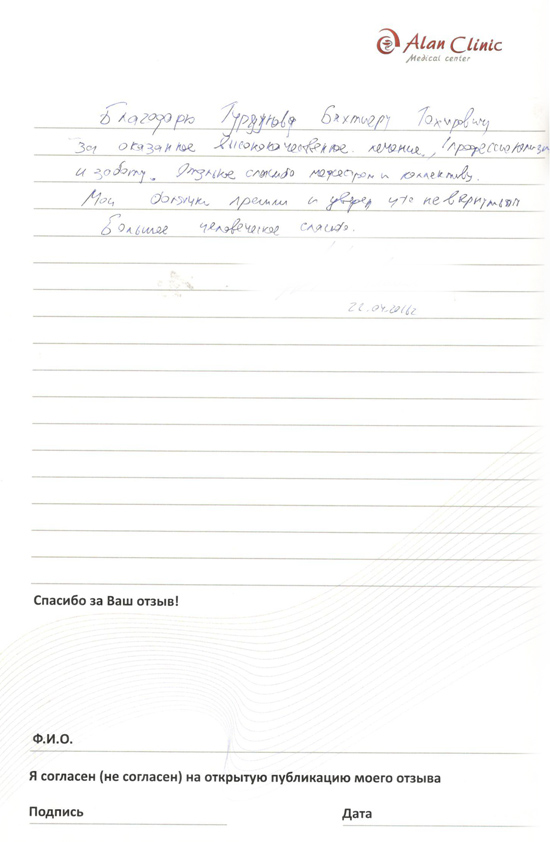 Alan Clinic
Medical center
Благодарю Турдунова Бахтияру Тохировичу
За оказанное высококачественное лечение, профессионализм
и заботу. Отдельное спасибо медсестрам и коллективу.
Мои болячки прошли и уверен что не вернуться
Большое человеческое спасибо.
22.04.2016г
Спасибо за Ваш отзыв!
Ф.И.О.
Я согласен (не согласен) на открытую публикацию моего отзыва
Подпись Дата